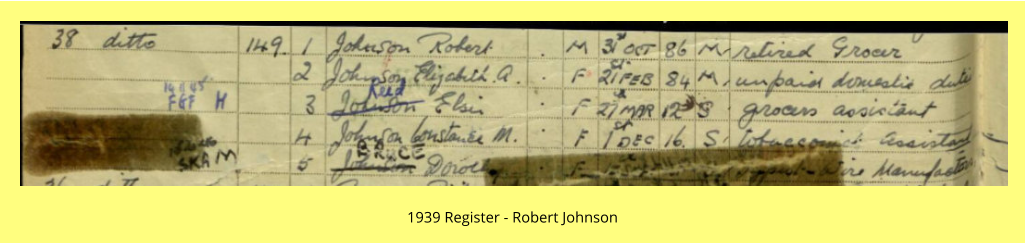 38 ditto 149. 1 Johnson Robert . M 31st OCT 86 M retired Grocer
2 Johnson Elizabeth A. . F 21st FEB 84 M unpaid domestic duti
Reed
F&F H 3 Johnson Elsie . F 27 MAR 12 S grocers assistant
4 Johnson Constance M. . F 1st DEC 16. S tobacconist assistant
SKA M 5 Johnson Doro F Wire Manufact
1939 Register - Robert Johnson